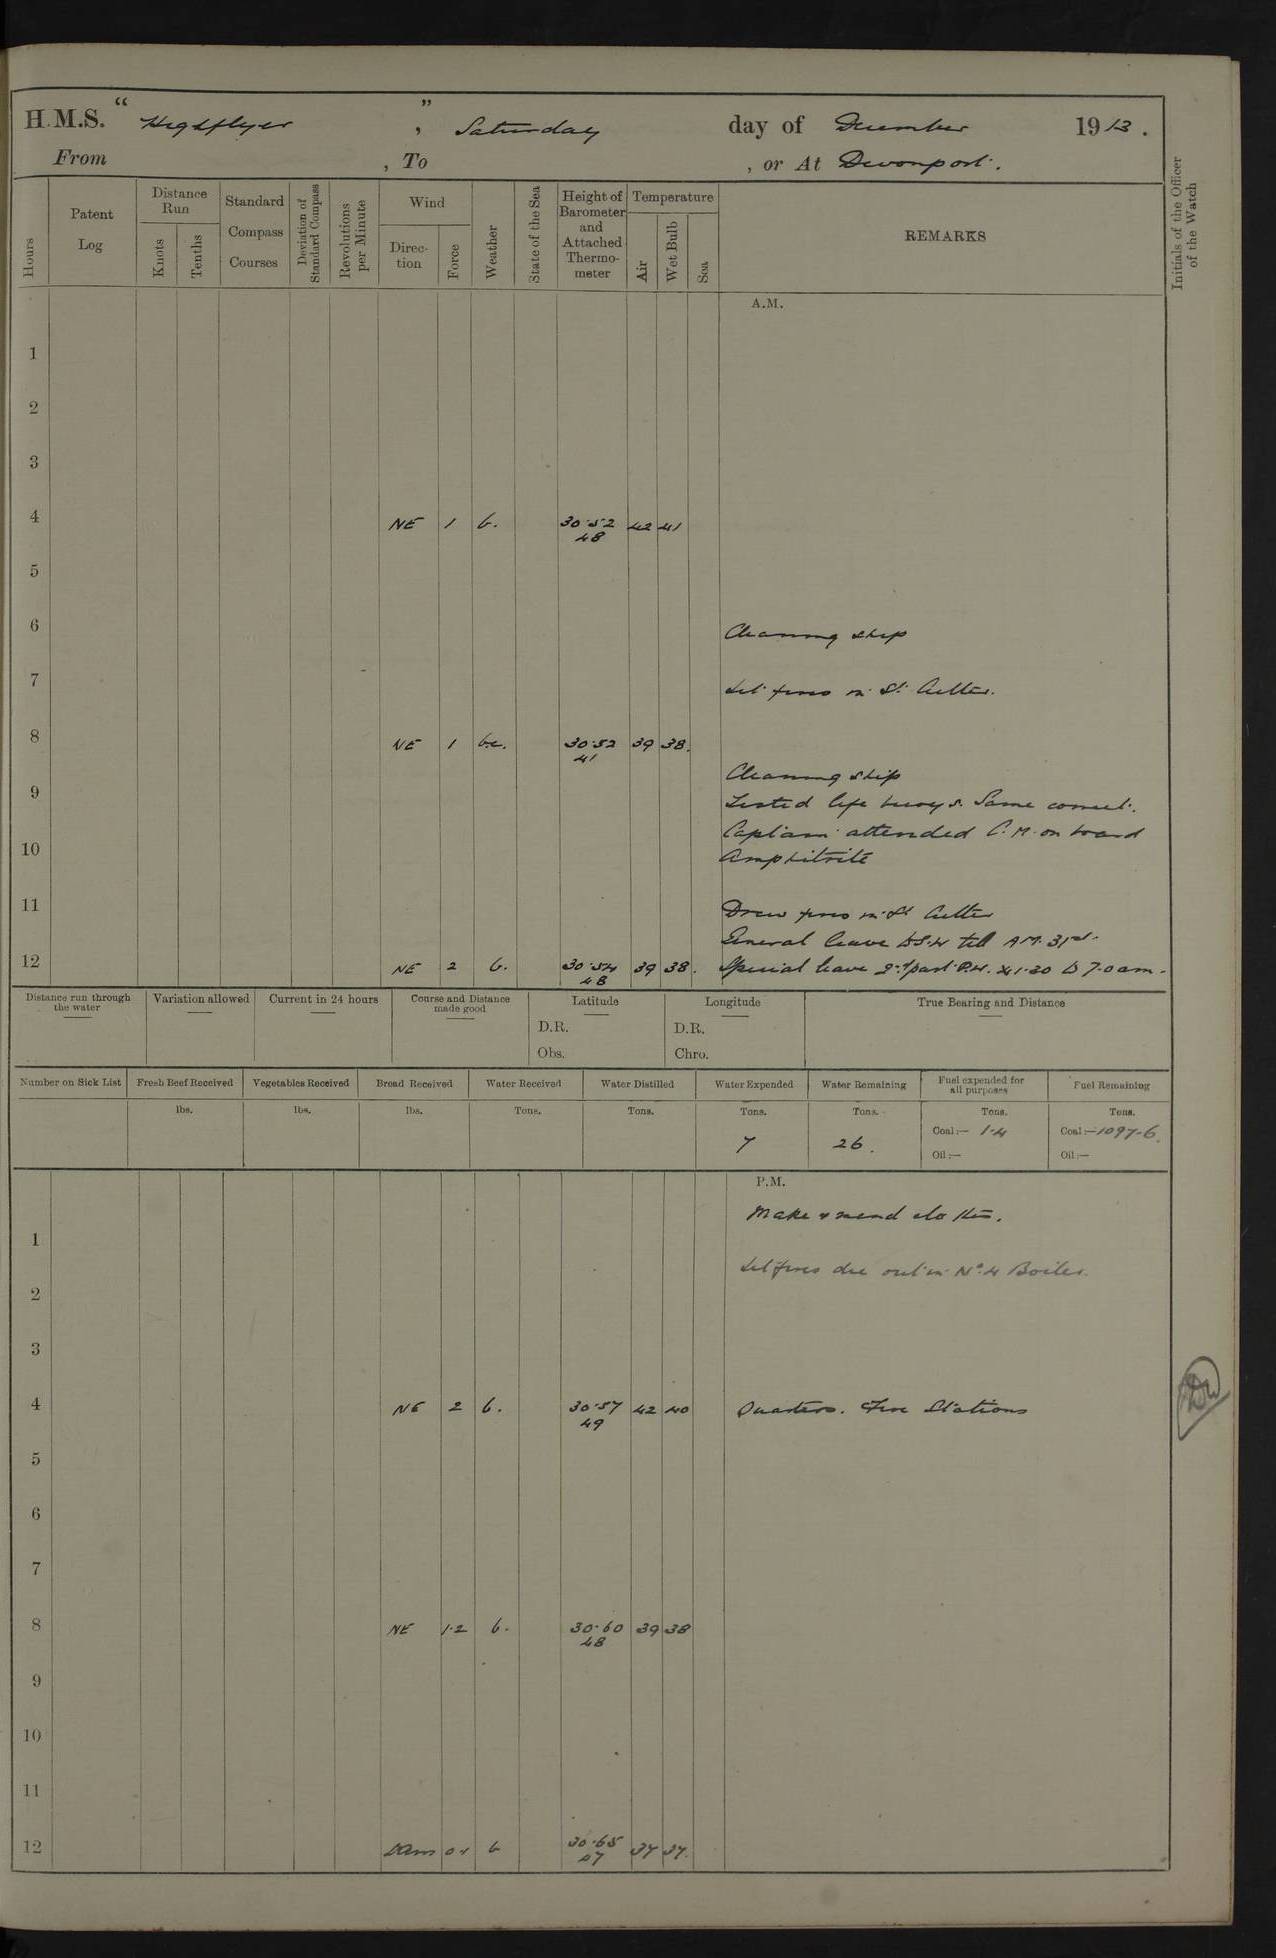 H.M.S. "Highflyer", Saturday day of December 1913.
From , To , or At Devonport.
Hours
Patent Log
Distance Run
Knots
Tenths
Standard Compass Courses
Deviation of Standard Compass
Revolutions per Minute
Wind
Direction
Force
Weather
State of the Sea
Height of Barometer and Attached Thermometer
Temperature
Air
Wet Bulb
Sea
REMARKS
Initials of the Officer of the Watch
A.M.
1
2
3
4 NE 1 b. 30.52 42 41
48
5
6 Cleaning ship
7 Lit fires in St. Cutter.
8 NE 1 bc. 30.52 39 38.
41
Cleaning ship
9 Tested life buoys. Same correct.
Captain attended C.M. on board
10 Amphitrite
11 Drew fires in St Cutter
General leave till AM. 31st.
12 NE 2 b. 30.54 39 38. Special leave part P.W. 1.30 to 7.0am.
48
Distance run through the water
Variation allowed
Current in 24 hours
Course and Distance made good
Latitude
D.R.
Obs.
Longitude
D.R.
Chro.
True Bearing and Distance
Number on Sick List
Fresh Beef Received
lbs.
Vegetables Received
lbs.
Bread Received
lbs.
Water Received
Tons.
Water Distilled
Tons.
Water Expended
Tons.
7
Water Remaining
Tons.
26.
Fuel expended for all purposes
Tons.
Coal:— 1.4
Oil:—
Fuel Remaining
Tons.
Coal:— 1097.6
Oil:—
P.M.
Make & mend clothes.
1
Let fires die out in No. 4 Boiler.
2
3
4 NE 2 b. 30.57 42 40 Quarters. Fire Stations
49
5
6
7
8 NE 1.2 b. 30.60 39 38
48
9
10
11
12 0.1 b 30.65 37 37.
47